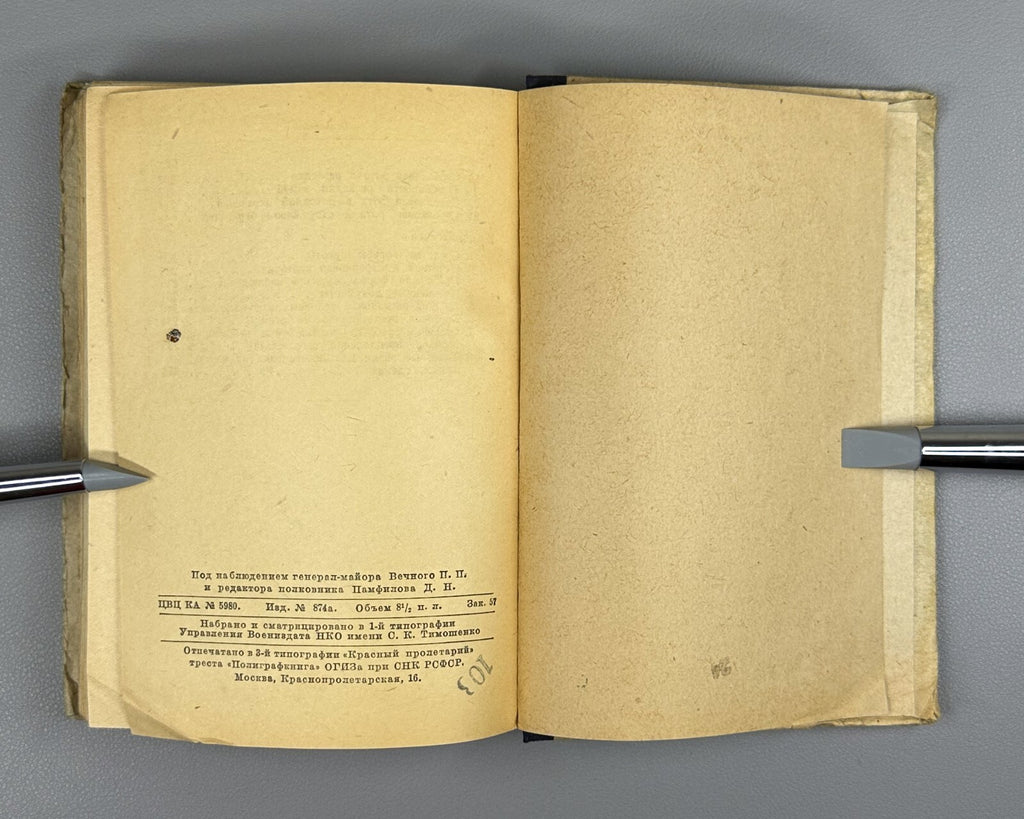 Под наблюдением генерал-майора Вечного П. П.
и редактора полковника Памфилова Д. Н.
ЦВЦ КА № 5980. Изд. № 874а. Объем 8¹/₂ п. л. Зак. 57
Набрано и сматрицировано в 1-й типографии
Управления Воениздата НКО имени С. К. Тимошенко
Отпечатано в 3-й типографии «Красный пролетарий»
треста «Полиграфкнига» ОГИЗа при СНК РСФСР.
Москва, Краснопролетарская, 16.
103